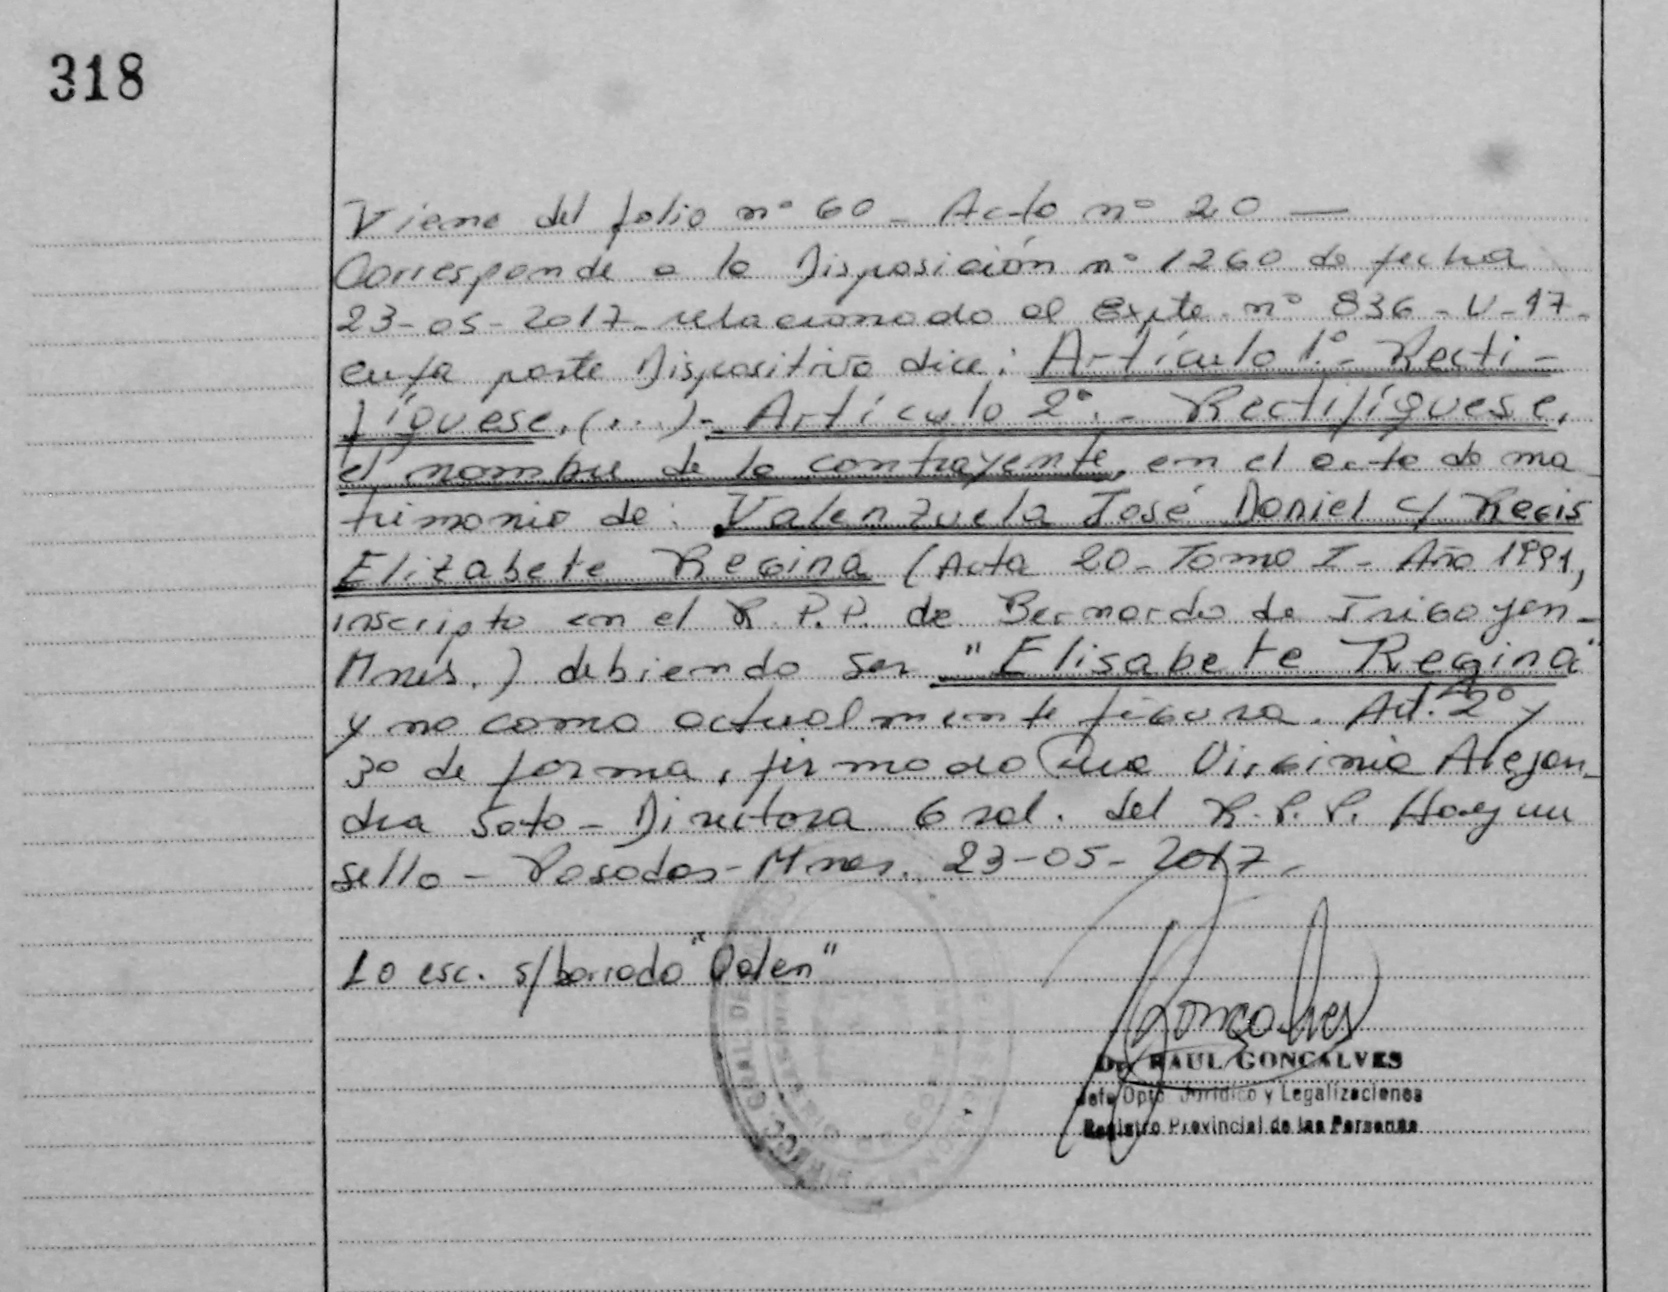 318
Viene del folio nº 60 - Acta nº 20 —
Corresponde a la Disposición nº 1260 de fecha
23-05-2017 - relacionado al Expte. nº 836 - U - 17 -
cuya parte Dispositiva dice: Artículo 1º.- Recti-
fíquese, (...) - Artículo 2º.- Rectifíquese,
el nombre de la contrayente, en el acta de ma
trimonio de: Valenzuela José Daniel c/ Regis
Elizabete Regina (Acta 20 - Tomo I - Año 1991,
inscripto en el R.P.P. de Bernardo de Irigoyen -
Mnes.) debiendo ser "Elisabete Regina"
y no como actualmente figura. Art. 2º y
3º de forma, firmado Dra Virginia Alejan-
dra Soto - Directora Gral. del R.P.P. Hay un
sello - Posadas - Mnes. 23-05-2017.
Lo esc. s/borrado "Valen"
Gonçalves
Dr. RAUL GONCALVES
Jefe Dpto. Jurídico y Legalizaciones
Registro Provincial de las Personas